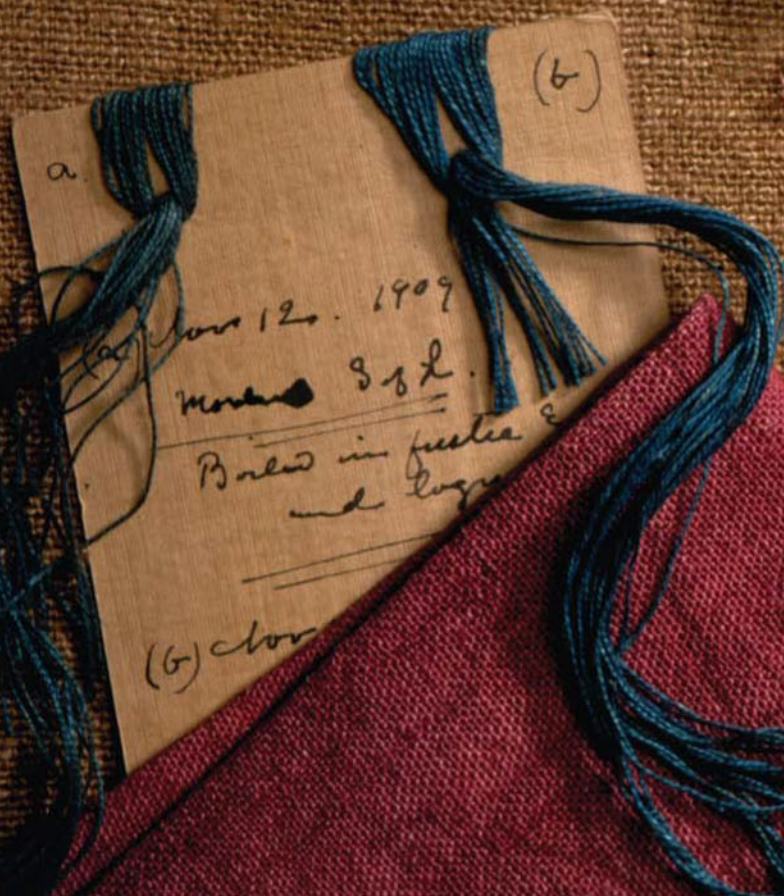 a.
(b)
(a) Nov 12. 1909
S of L.
Boiled in fustic &
and logw
(b) Nov